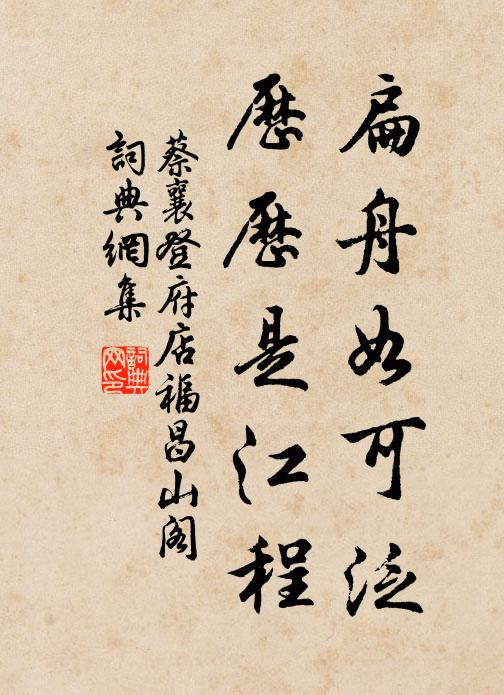 扁舟如可泛
歷歷是江程
蔡襄登府店福昌山閣
詞典網集
詞典网印